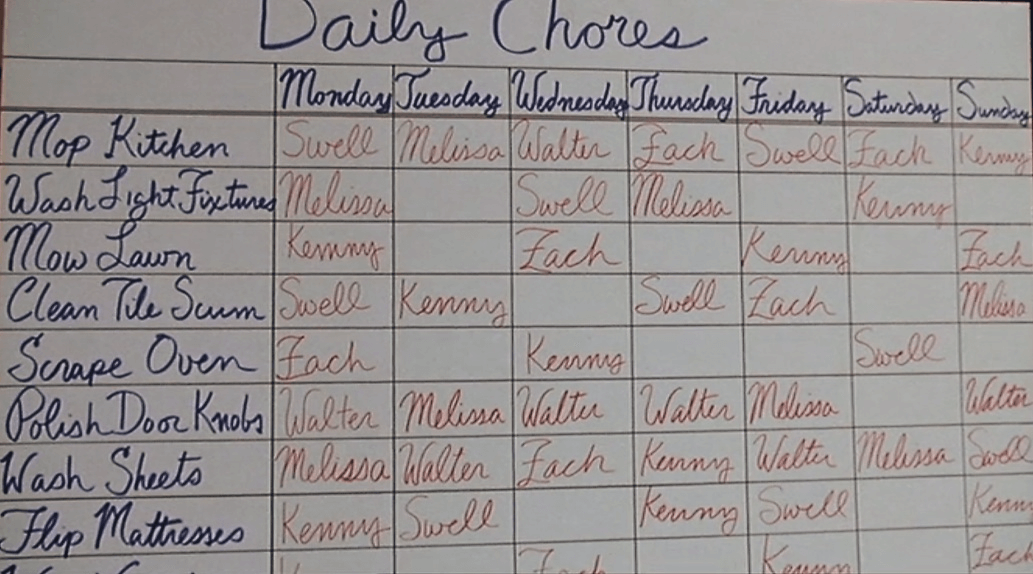 Daily Chores
Monday Tuesday Wednesday Thursday Friday Saturday Sunday
Mop Kitchen Swell Melissa Walter Zach Swell Zach Kenny
Wash Light Fixtures Melissa Swell Melissa Kenny
Mow Lawn Kenny Zach Kenny Zach
Clean Tile Scum Swell Kenny Swell Zach Melissa
Scrape Oven Zach Kenny Swell
Polish Door Knobs Walter Melissa Walter Walter Melissa Walter
Wash Sheets Melissa Walter Zach Kenny Walter Melissa Swell
Flip Mattresses Kenny Swell Kenny Swell Kenny
Zach Kenny Zach